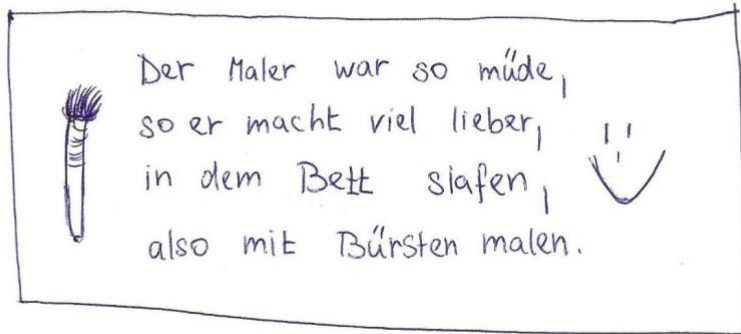 Der Maler war so müde,
so er macht viel lieber,
in dem Bett slafen,
also mit Bürsten malen.